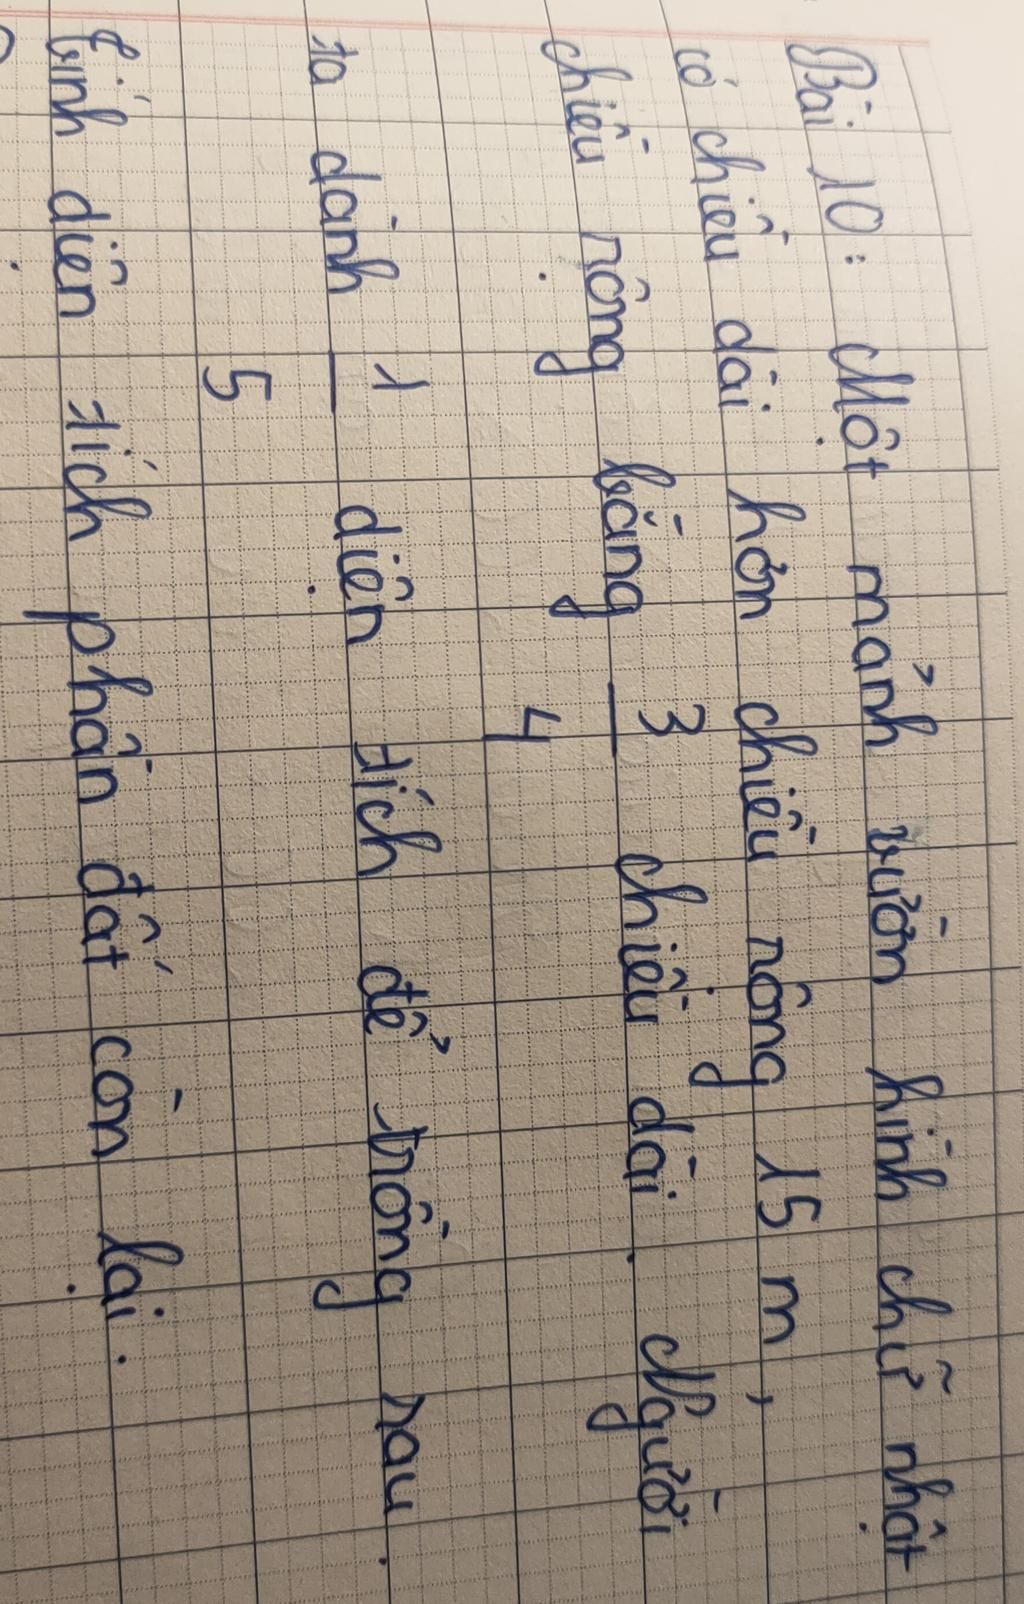 Bài 10: Một mảnh vườn hình chữ nhật
có chiều dài hơn chiều rộng 15 m,
chiều rộng bằng 3/4 chiều dài. Người
ta dành 1/5 diện tích để trồng rau.
Tính diện tích phần đất còn lại.